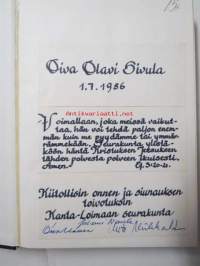 Oiva Olavi Sivula
1.7.1986
Voimallaan, joka meissä vaikut-
taa, hän voi tehdä paljon enem-
män kuin me pyydämme tai ymmär-
rämmekään. Seurakunta ylistä-
köön häntä Kristuksen Jeesuksen
tähden polvesta polveen ikuisesti.
Amen. Ef. 3:20-21.
Kiitollisin onnen ja siunauksen
toivotuksin
Kanta-Loimaan seurakunta